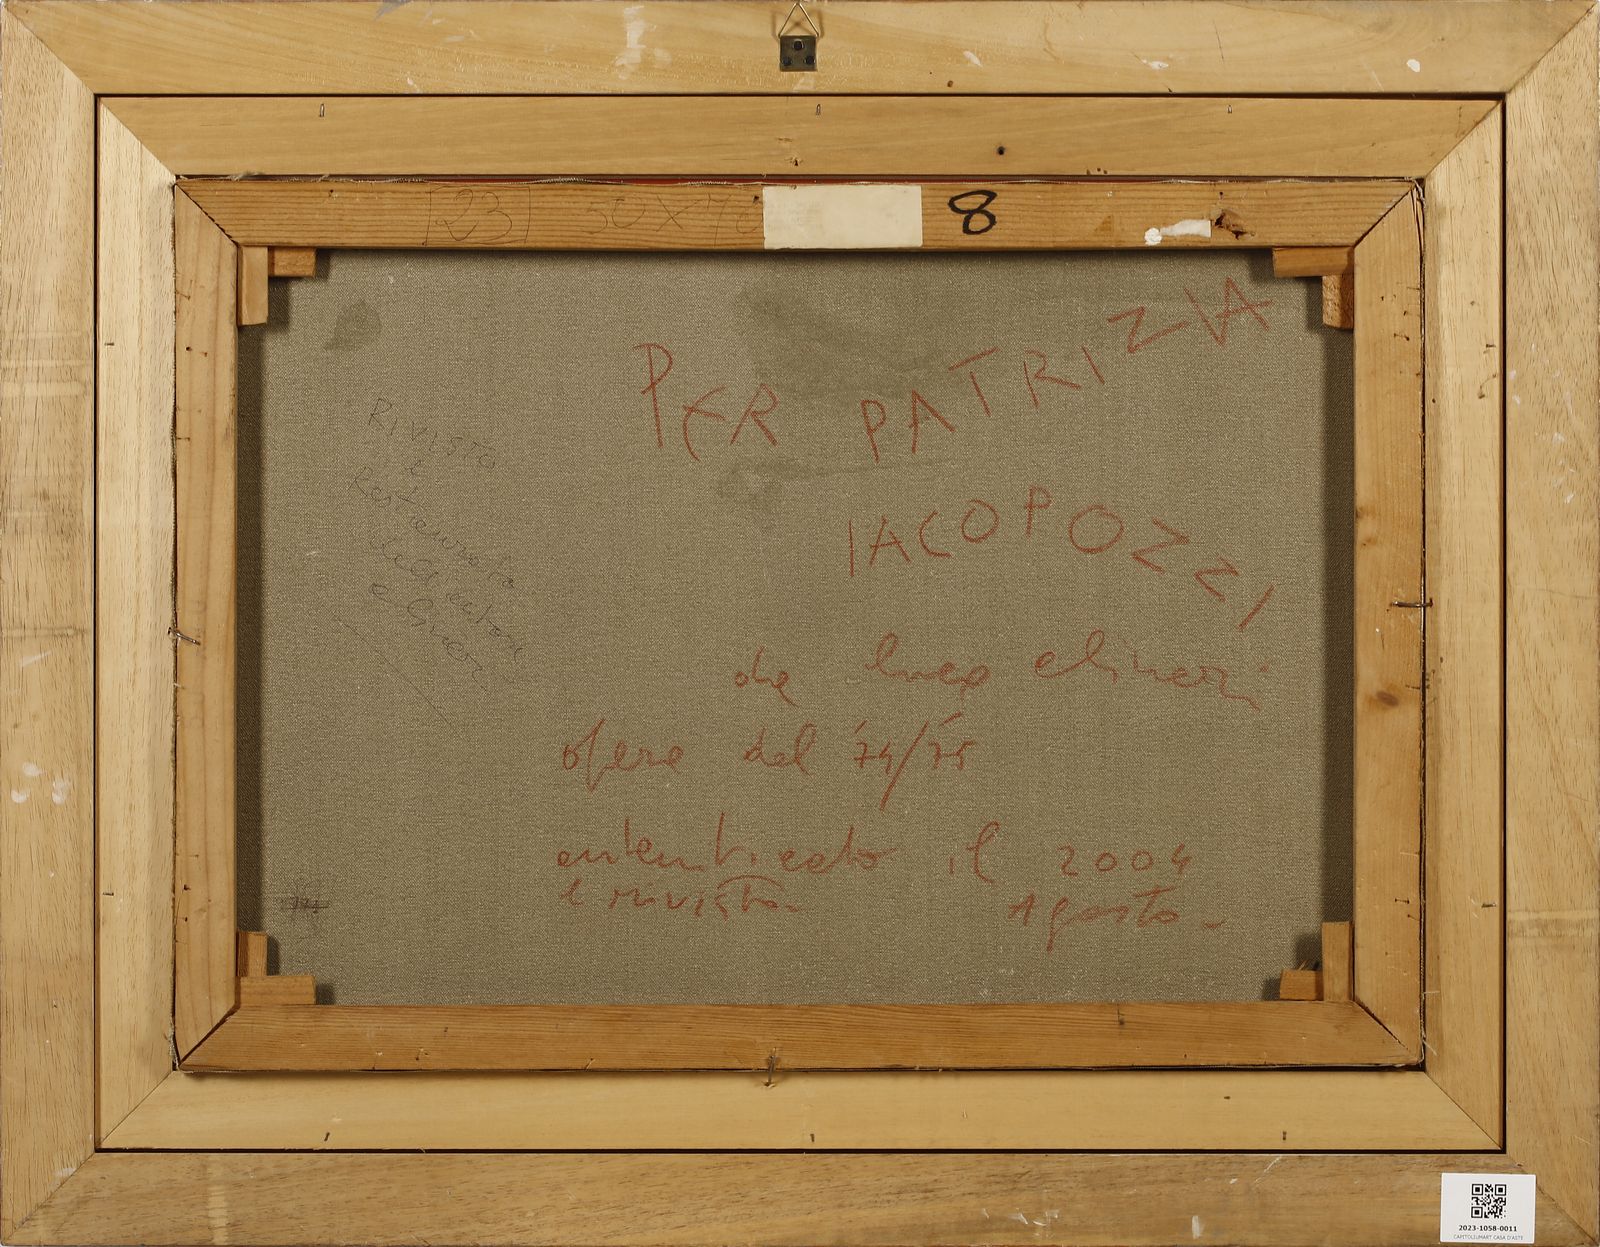 23 50X70
8
PER PATRIZIA
IACOPOZZI
RIVISTO
e
Restaurato
dell'autore
da luca alinari
opera del '74/75
autenticato il 2004
e rivisto- Agosto-
2023-1058-0011
CAPITOLIUMART CASA D'ASTE